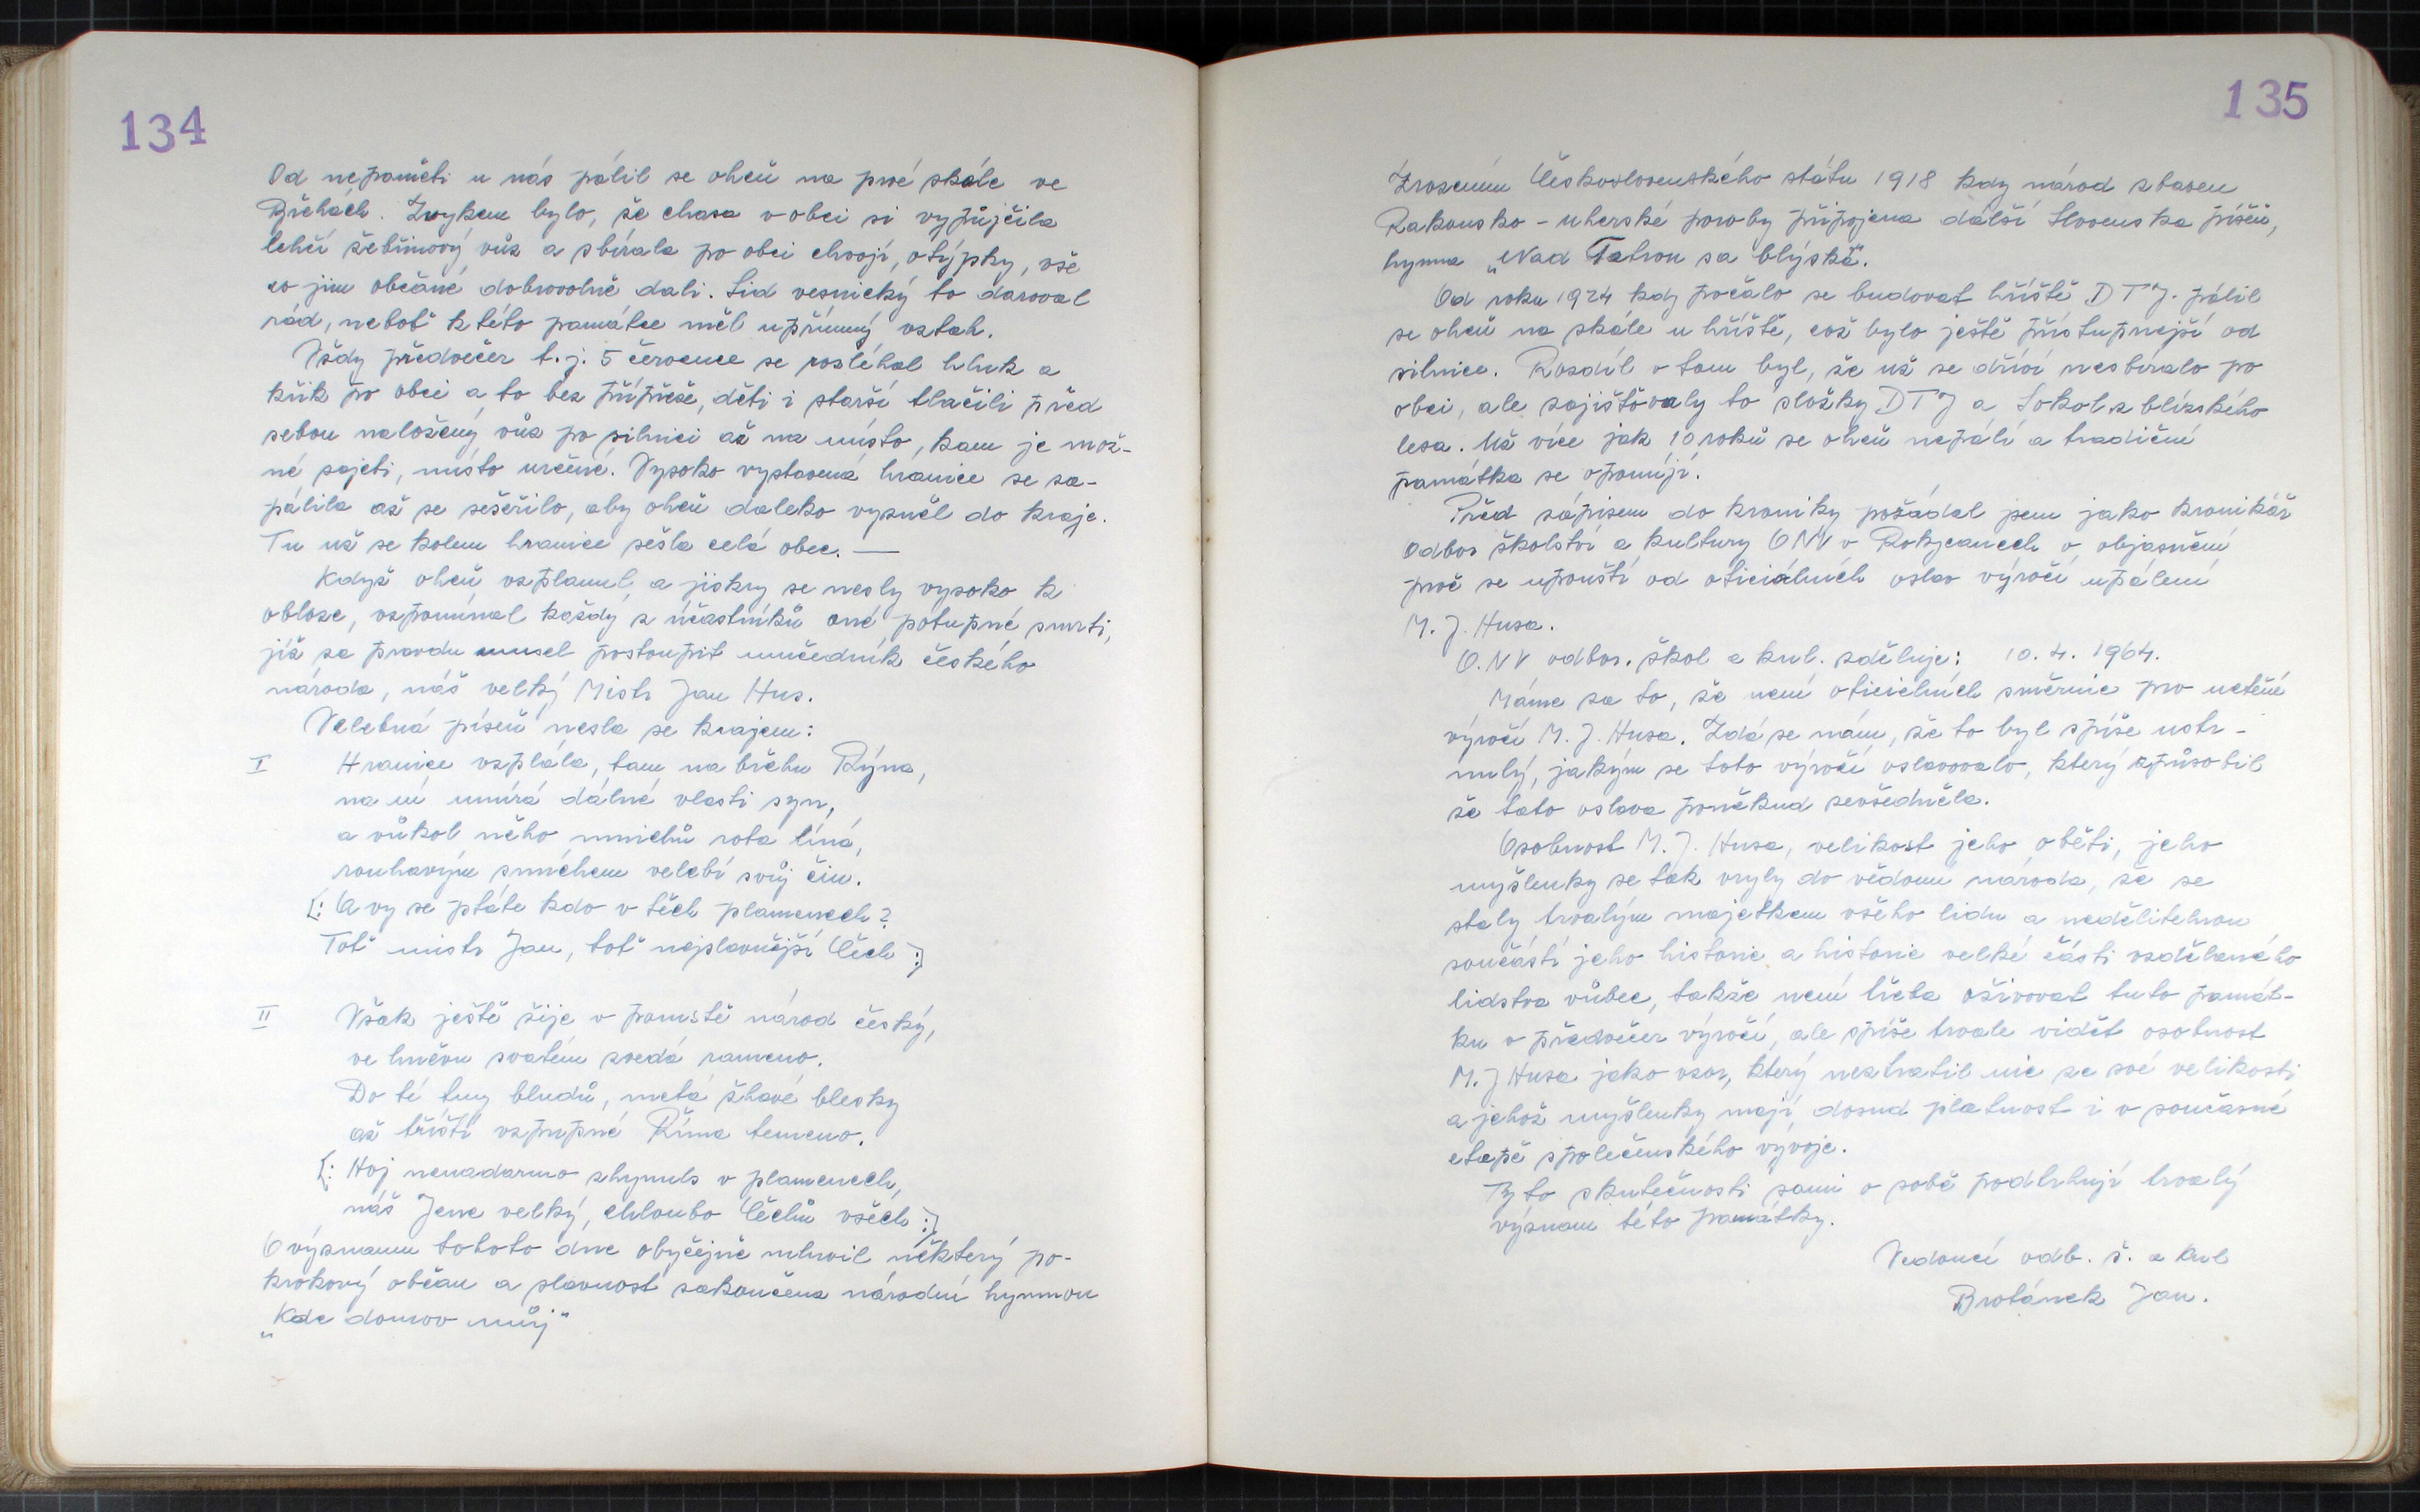 134
Od nepaměti u nás pálil se oheň na prvé skále ve
Břehách. Zvykem bylo, že chasa v obci si vypůjčila
lehčí žebřinový vůz a sbírala po obci chvojí, otýpky, vše
co jim občané dobrovolně dali. Lid vesnický to daroval
rád, neboť k této památce měl upřímný vztah.
Vždy předvečer t.j. 5 července se rozléhal hluk a
křik po obci a to bez přípřeže, děti i starší tlačili před
sebou naložený vůz po silnici až na místo, kam je mož-
né zajeti, místo určené. Vysoko vystavená hranice se za-
pálila až se sešeřilo, aby oheň daleko vyzněl do kraje.
Tu už se kolem hranice sešla celá obec. —
Když oheň vzplanul a jiskry se nesly vysoko k
obloze, vzpomínal každý z účastníků oné potupné smrti,
již za pravdu musel postoupit mučedník českého
národa, náš velký Mistr Jan Hus.
Velebná píseň nesla se krajem:
I Hranice vzplála, tam na břehu Rýna,
na ní umírá dálné vlasti syn,
a vůkol něho mnichů rota líná,
rouhavým smíchem velebí svůj čin.
[: A vy se ptáte kdo v těch plamenech?
Toť mistr Jan, toť nejslavnější Čech :]
II Však ještě žije v pomstě národ český,
ve hněvu svatém zvedá rameno.
Do té tmy bludů, metá žhavé blesky
až tříští vzpupné Říma temeno.
[: Hoj nenadarmo zhynuls v plamenech,
náš Jene velký, chloubo Čechů všech :]
O významu tohoto dne obyčejně mluvil některý po-
krokový občan a slavnost zakončena národní hymnou
„Kde domov můj"
135
Zrozením Československého státu 1918 kdy národ zbaven
Rakousko - uherské poroby připojena další Slovenska píseň,
hymna „Nad Tatrou sa blýská".
Od roku 1924 kdy počalo se budovat hřiště D T J. pálil
se oheň na skále u hřiště, což bylo ještě přístupnejší od
silnice. Rozdíl v tom byl, že už se dříví nesbíralo po
obci, ale zajišťovaly to složky DTJ a Sokol z blízkého
lesa. Už více jak 10 roků se oheň nepálí a tradiční
památka se opomíjí.
Před zápisem do kroniky požádal jsem jako kronikář
Odbor školství a kultury ONV v Rokycanech o objasnění
proč se upouští od oficiálních oslav výročí upálení
M. J. Husa.
O.NV odbor. škol a kul. sděluje: 10. 4. 1964.
Máme za to, že není oficielních směrnic pro uctění
výročí M. J. Husa. Zdá se nám, že to byl spíše ustr-
nulý, jakým se toto výročí oslavovalo, který způsobil
že tato oslava poněkud zevšedněla.
Osobnost M. J. Husa, velikost jeho oběti, jeho
myšlenky se tak vryly do vědomí národa, že se
staly trvalým majetkem všeho lidu a nedělitelnou
součástí jeho historie a historie velké části vzdělaného
lidstva vůbec, takže není třeba oživovat tuto památ-
ku v předvečer výročí, ale spíše trvale vidět osobnost
M. J Husa jako vzor, který neztratil nic ze své velikosti
a jehož myšlenky mají dosud platnost i v současné
etapě společenského vývoje.
Tyto skutečnosti sami o sobě podtrhují trvalý
význam této památky.
Vedoucí odb. š. a kul
Brotánek Jan.